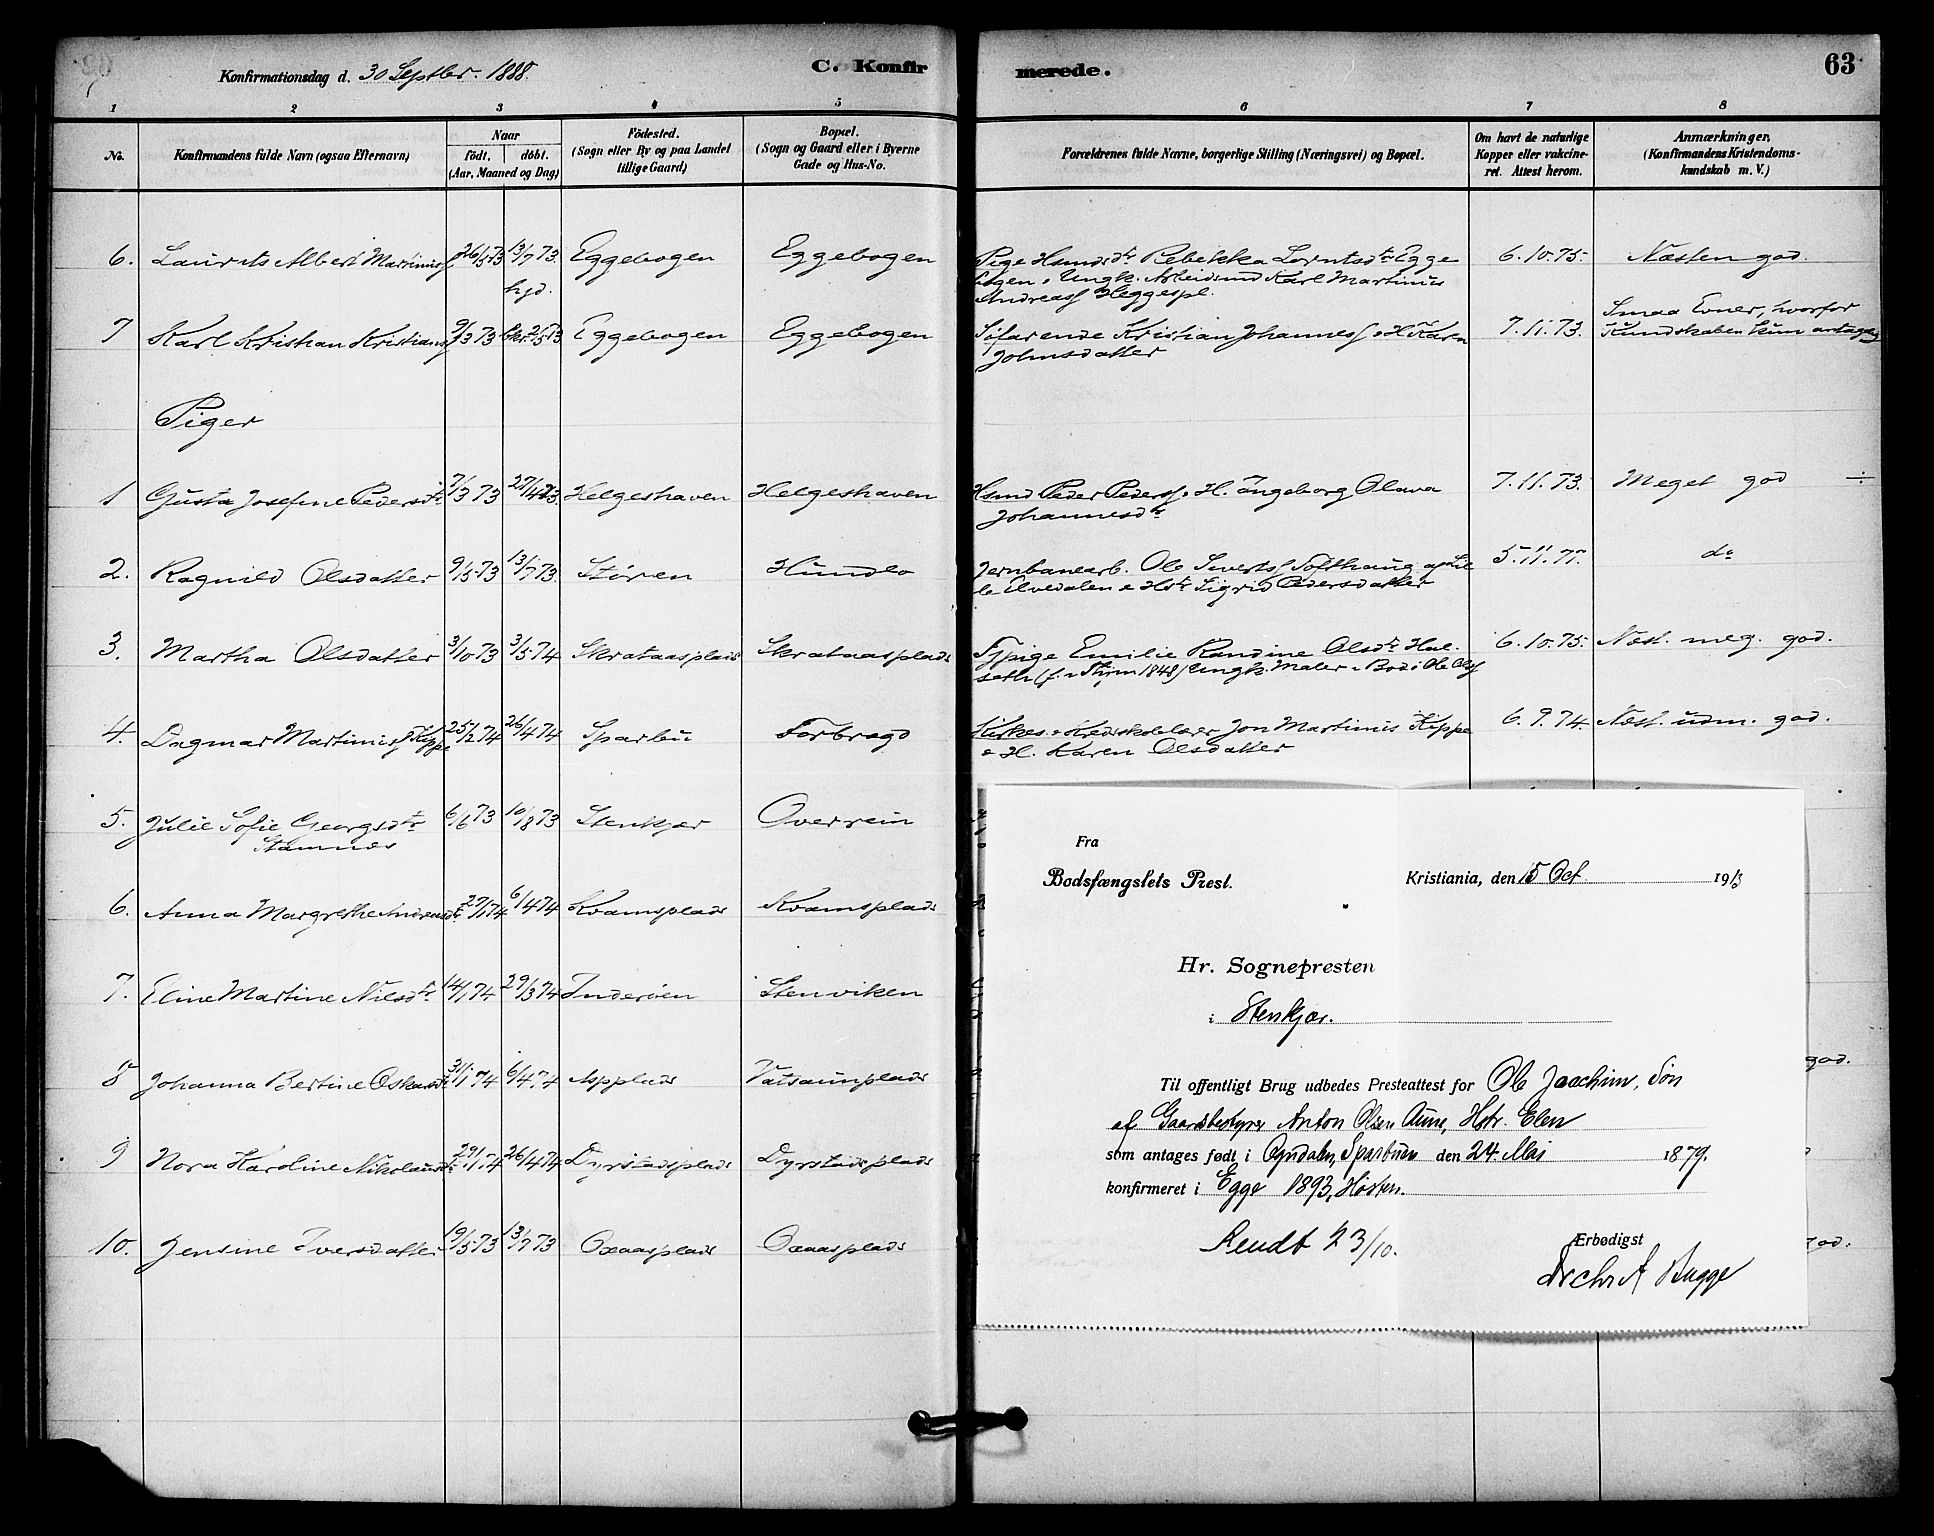 Konfirmationsdag d. 30 Septbr. 1888.
C. Konfirmerede.
63
1 2 3 4 5 6 7 8
No.
Konfirmandens fulde Navn (ogsaa Efternavn)
Naar
født. døbt.
(Aar, Maaned og Dag)
Fødested.
(Sogn eller By og paa Landet
tillige Gaard)
Bopæl.
(Sogn og Gaard eller i Byerne
Gade og Hus-No.
Forældrenes fulde Navne, borgerlige Stilling (Næringsvei) og Bopæl.
Om havt de naturlige
Kopper eller vakcine-
ret. Attest herom.
Anmærkninger.
(Konfirmandens Kristendoms-
kundskab m. V.)
6. Laurits Albert Martinusf 26/5 73 13/7 73. Eggebogen Eggebogen Pige Hsmdsdtr Rebekka Lorntsdtr Egge 6.10.75. Næsten god.
hjd. bogen o Ungk. Arbeidsmd Karl Martinus
Andreasf Heggespl.
7 Karl Kristian Kristiansf 9/3 73 2/5 73 Eggebogen Eggebogen Søfarende Kristian Johannesf o H. Karen 7.11.73. Smaa Evner, hvorfor
Johnsdatter Kundskaben kun antagelig
Piger
1 Gusta Josefine Pedersdtr 7/3 73 27/4 73. Helgeshaven Helgeshaven Hsmd Peder Pedersf o H. Ingeborg Olava 7.11.73. Meget god ÷
Johannesdtr
2. Ragnild Olsdatter 9/5 73 13/7 73. Støren Hundlo Jernbanearb. Ole Sivertsf Softhaug 5.11.77. do
Elvedalen o Hstr Sigrid Pedersdatter
3. Martha Olsdatter 3/10 73 3/5 74 Skrataasplads Skrataasplads Pige Emilie Randine Olsdtr Hal- 6.10.75. Næst. meg. god.
seth (f. 1848) Ungk. Maler Ole Olsf
4. Dagmar Martinusf Kippe 25/2 74 26/4 74 Sparbu Forbregd Kirkes. o Kredsskolelærer Jon Martinus Kippe 6.9.74. Næst. udm. god.
o H. Karen Olsdatter
5. Julie Sofie Georgsdtr 6/6 73 10/8 73 Stenkjær Overrein
Stamnæs
6. Anna Margrethe Andreasdtr 27/1 74 6/4 74 Kvamsplads Kvamsplads
7. Eline Martine Nilsdtr 14/1 74 29/3 74 Inderøen Stenviken
8 Johanna Bertine Oskarsdtr 31/1 74 6/4 74 Aspplads Vatsaunplads god.
9 Nora Karoline Nikolausdtr 29/1 74 26/4 74 Dyrstadsplads Dyrstadsplads
10. Jensine Iversdatter 19/5 73 13/7 73 Oxaasplads Oxaasplads god.
Fra
Bodsfængslets Prest.
Kristiania, den 15 Oct. 1913
Hr. Sognepresten
i Stenkjær.
Til offentligt Brug udbedes Presteattest for Ole Joachim, Søn
af Gaardbestyrer Anton Olsen Aune, Hstr. Elen
som antages født i Ogndalen, Sparbuen den 24 Mai 1879.
konfirmeret i Egge 1893, Høsten.
Sendt 23/10.
Ærbødigst
Dr Chr A Bugge